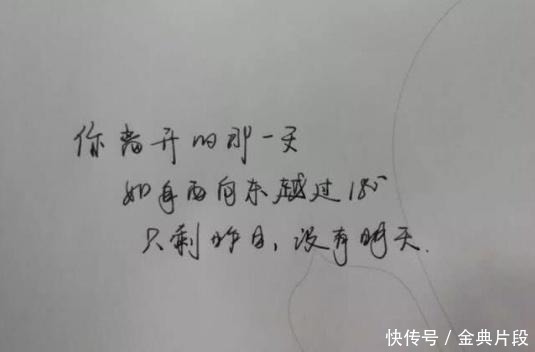 你离开的那一天
如自西向东越过180°
只剩昨日，没有明天.
快传号／金典片段